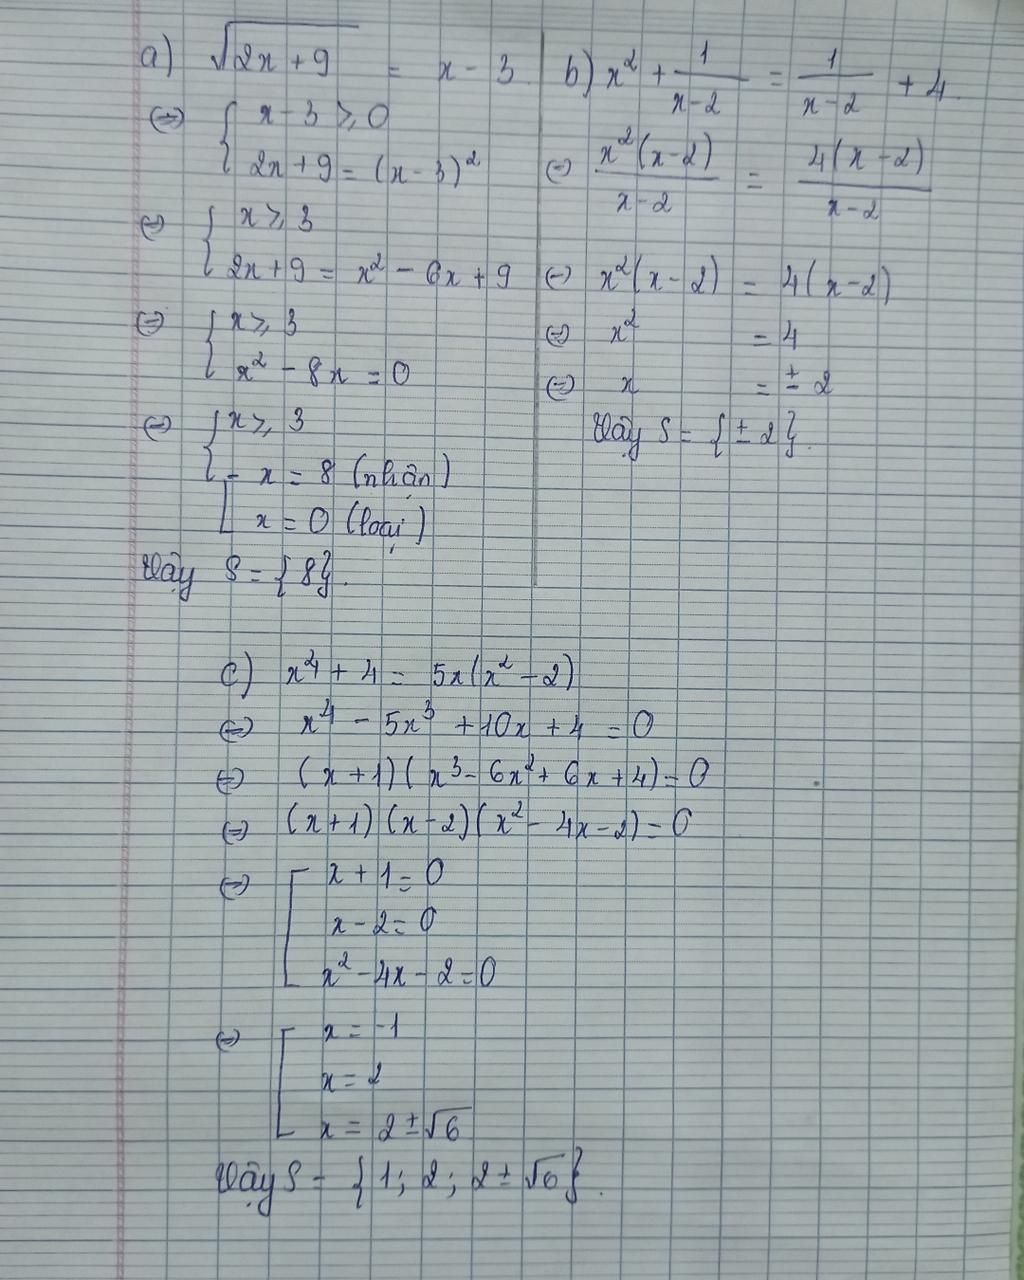 a) √(2x + 9) = x - 3
⇔ { x - 3 ≥ 0
2x + 9 = (x - 3)²
⇔ { x ≥ 3
2x + 9 = x² - 6x + 9
⇔ { x ≥ 3
x² - 8x = 0
⇔ { x ≥ 3
[ x = 8 (nhận)
x = 0 (loại)
Vậy S = {8}.
b) x² + 1/(x-2) = 1/(x-2) + 4
⇔ x²(x-2)/(x-2) = 4(x-2)/(x-2)
⇔ x²(x-2) = 4(x-2)
⇔ x² = 4
⇔ x = ± 2
Vậy S = {± 2}.
c) x⁴ + 4 = 5x(x² - 2)
⇔ x⁴ - 5x³ + 10x + 4 = 0
⇔ (x + 1)(x³ - 6x² + 6x + 4) = 0
⇔ (x + 1)(x - 2)(x² - 4x - 2) = 0
⇔ [ x + 1 = 0
x - 2 = 0
x² - 4x - 2 = 0
⇔ [ x = -1
x = 2
x = 2 ± √6
Vậy S = {1; 2; 2 ± √6}.